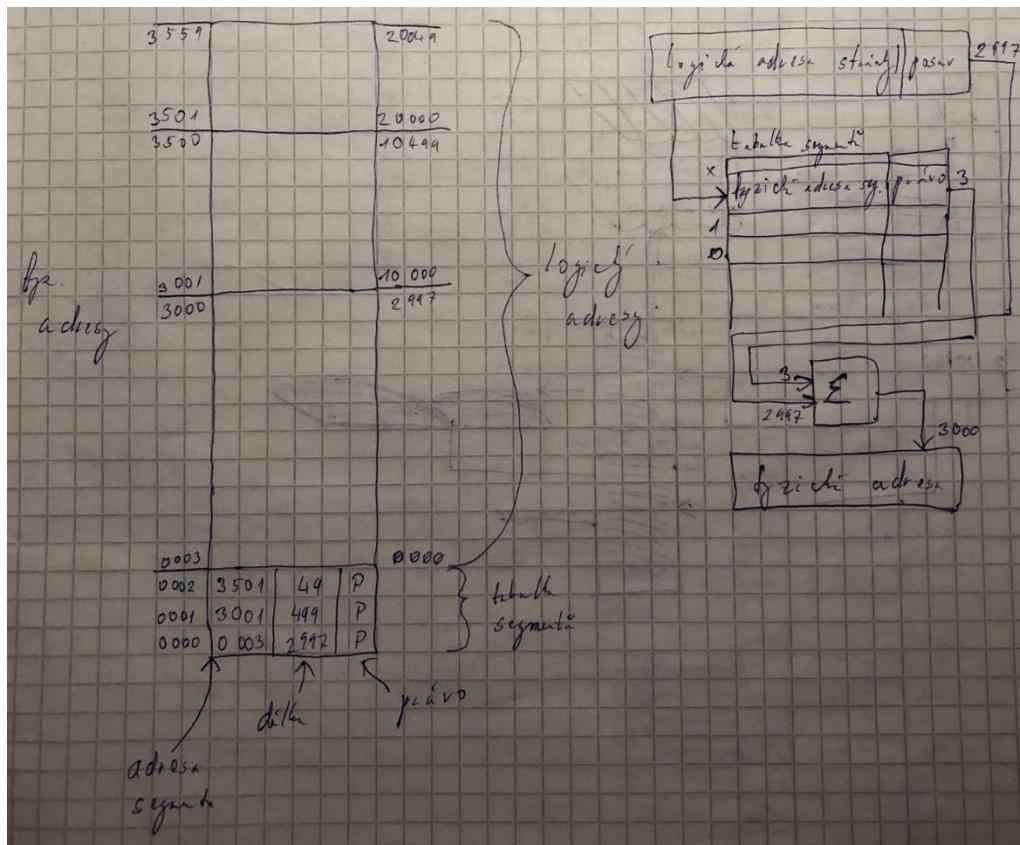 3559
20049
3501
20000
3500
10499
3001
10 000
3000
2997
fyz.
adresy
logický
adresy
0003
0000
0002 3501 49 P
0001 3001 499 P
0000 0 003 2997 P
tabulka
segmentů
adresa
segmentu
délka
právo
logická adresa stránky posuv 2997
tabulka segmentů
x fyzická adresa seg. právo 3
1
0
3
2997
Σ
3000
fyzická adresa